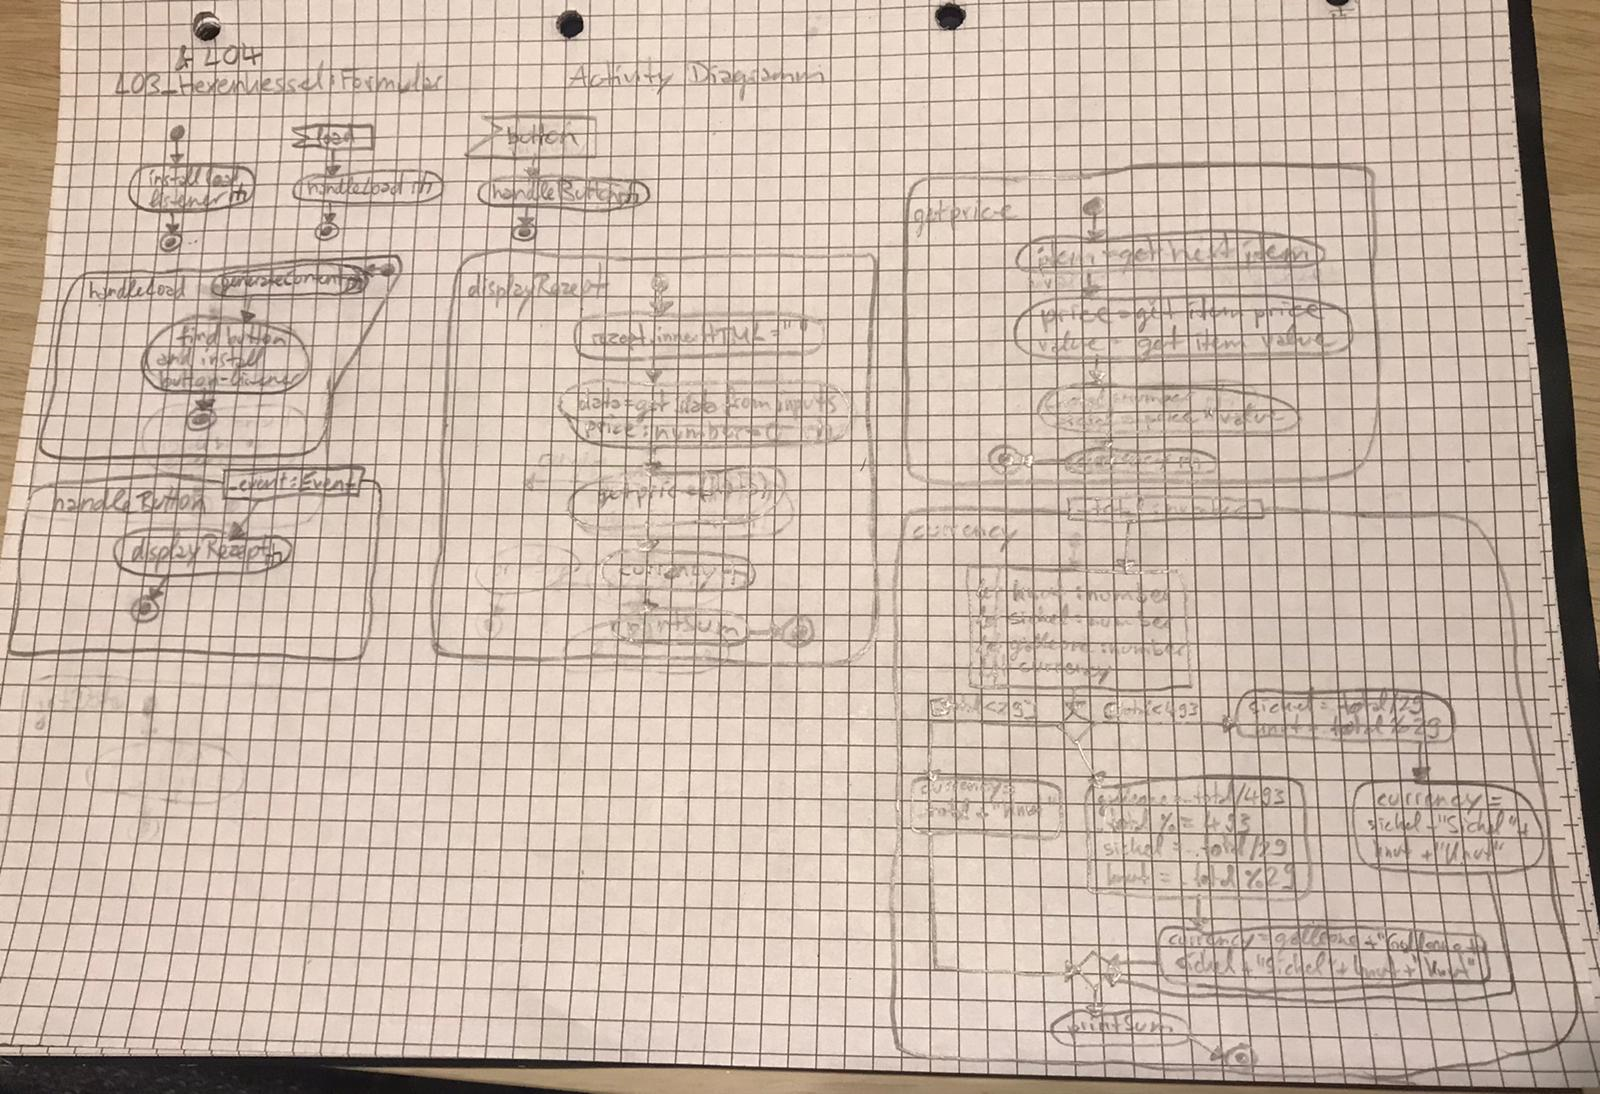 & L04
L03_Hexenkessel:Formular
Activity Diagramm
install load
listener
load
handleLoad
button
handleButton
handleLoad
generateContent
find button
and install
button-listener
handleButton
_event:Event
displayRezept
displayRezept
rezept.innerHTML=""
data=get data from inputs
price:number=
getprice
currency
printSum
getprice
item=get next item
price=get item price
value= get item value
price * value
currency
total:number
currency
knut:number
sickel:number
galleone:number
currency
total<29
total<493
sickel = total/29
knut = total%29
currency=
total + "Knut"
galleone=total/493
total %= 493
sickel = total/29
knut = total %29
currency =
sickel +"Sickel"+
knut +"Knut"
currency=galleone+"Galleone+
sickel+"Sickel"+knut+"Knut"
printSum